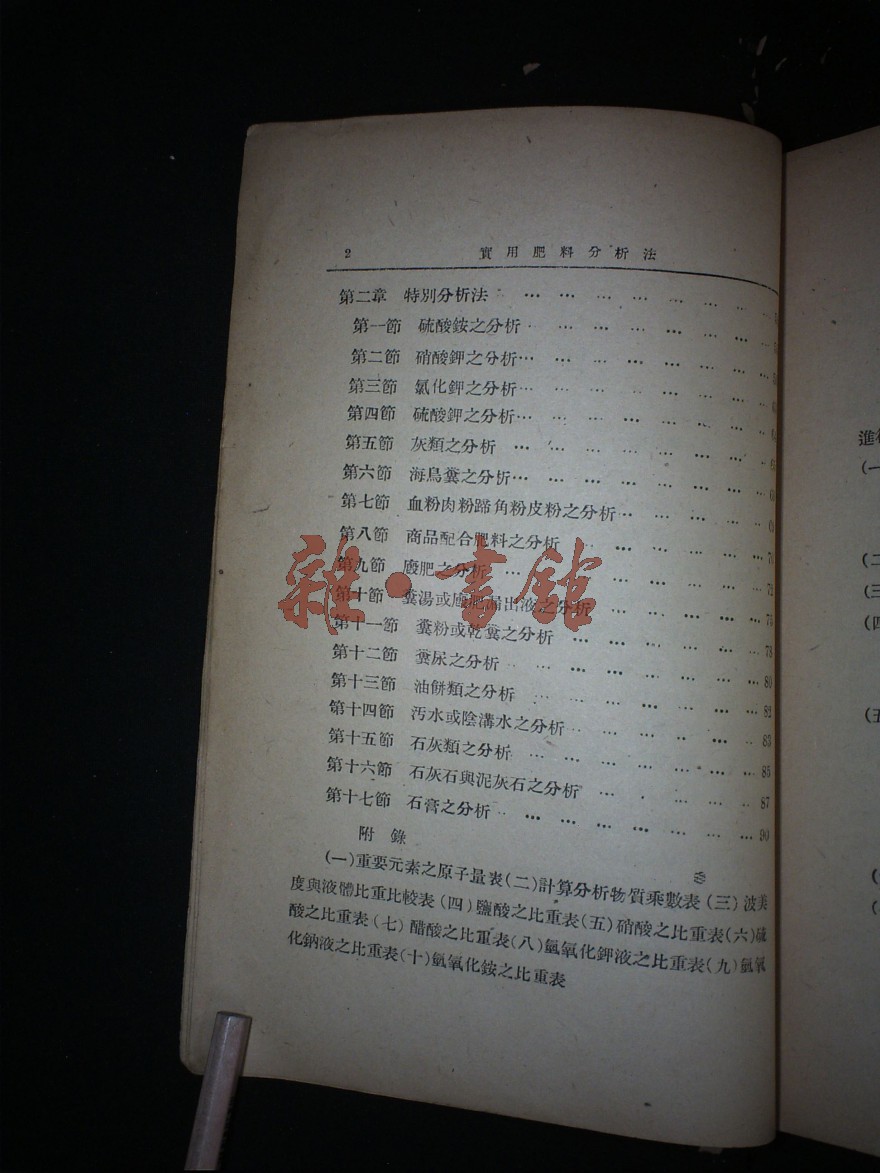 2 實用肥料分析法
第二章 特別分析法 … … … … … … …
第一節 硫酸銨之分析 … … … … … …
第二節 硝酸鉀之分析… … … … … … …
第三節 氯化鉀之分析… … … … … … …
第四節 硫酸鉀之分析… … … … … … …
第五節 灰類之分析 … … … … … … …
第六節 海鳥糞之分析… … … … … … …
第七節 血粉肉粉蹄角粉皮粉之分析… … … … …
第八節 商品配合肥料之分析 … … … … …
第九節 廏肥之分析 … … … … … … … 72
第十節 糞湯或廏肥漏出液之分析 … … … … 75
第十一節 糞粉或乾糞之分析 … … … … … 78
第十二節 糞尿之分析 … … … … … … 80
第十三節 油餅類之分析 … … … … … … 82
第十四節 汚水或陰溝水之分析… … … … … 83
第十五節 石灰類之分析 … … … … … … 85
第十六節 石灰石與泥灰石之分析 … … … … 87
第十七節 石膏之分析 … … … … … … 90
附錄
(一)重要元素之原子量表(二)計算分析物質乘數表(三)波美
度與液體比重比較表(四)鹽酸之比重表(五)硝酸之比重表(六)硫
酸之比重表(七)醋酸之比重表(八)氫氧化鉀液之比重表(九)氫氧
化鈉液之比重表(十)氫氧化銨之比重表
雜·書館
進行
(一
(二
(三
(四
(五